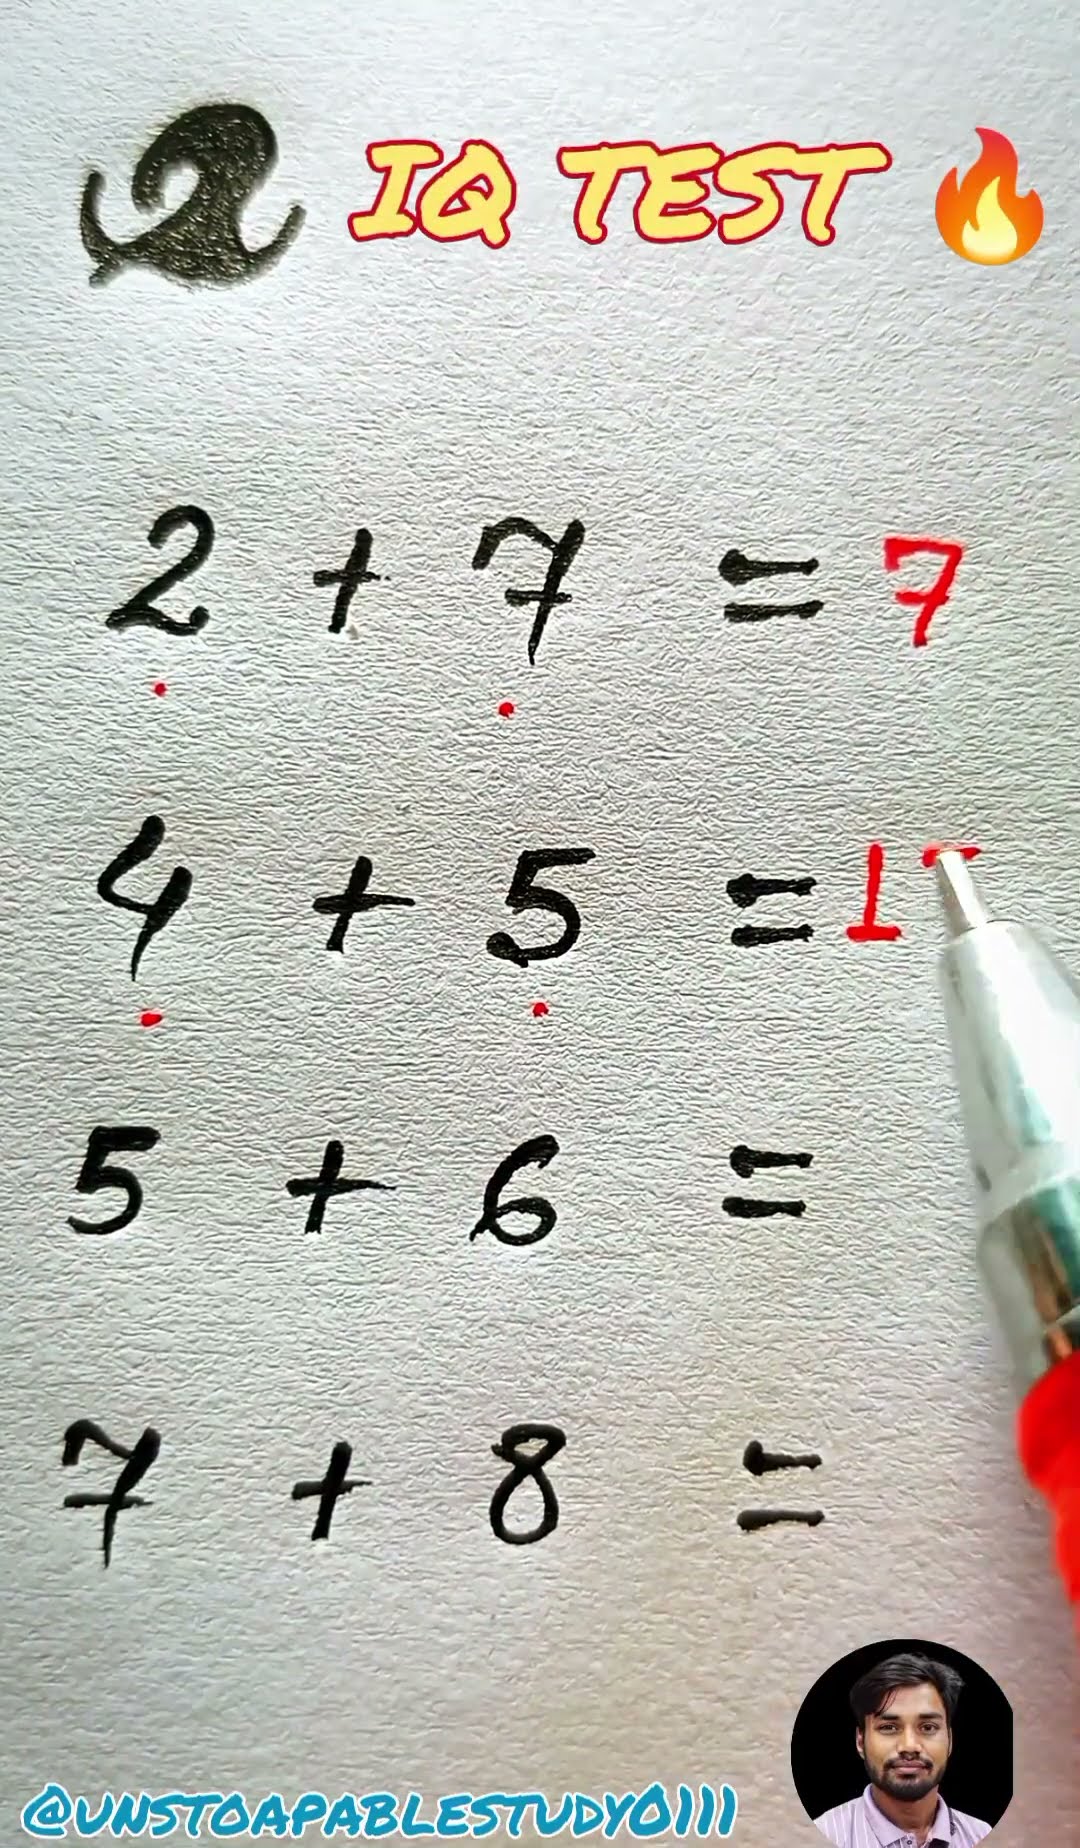 Q IQ TEST 🔥
2 + 7 = 7
4 + 5 = 1
5 + 6 =
7 + 8 =
@UNSTOAPABLESTUDY0111